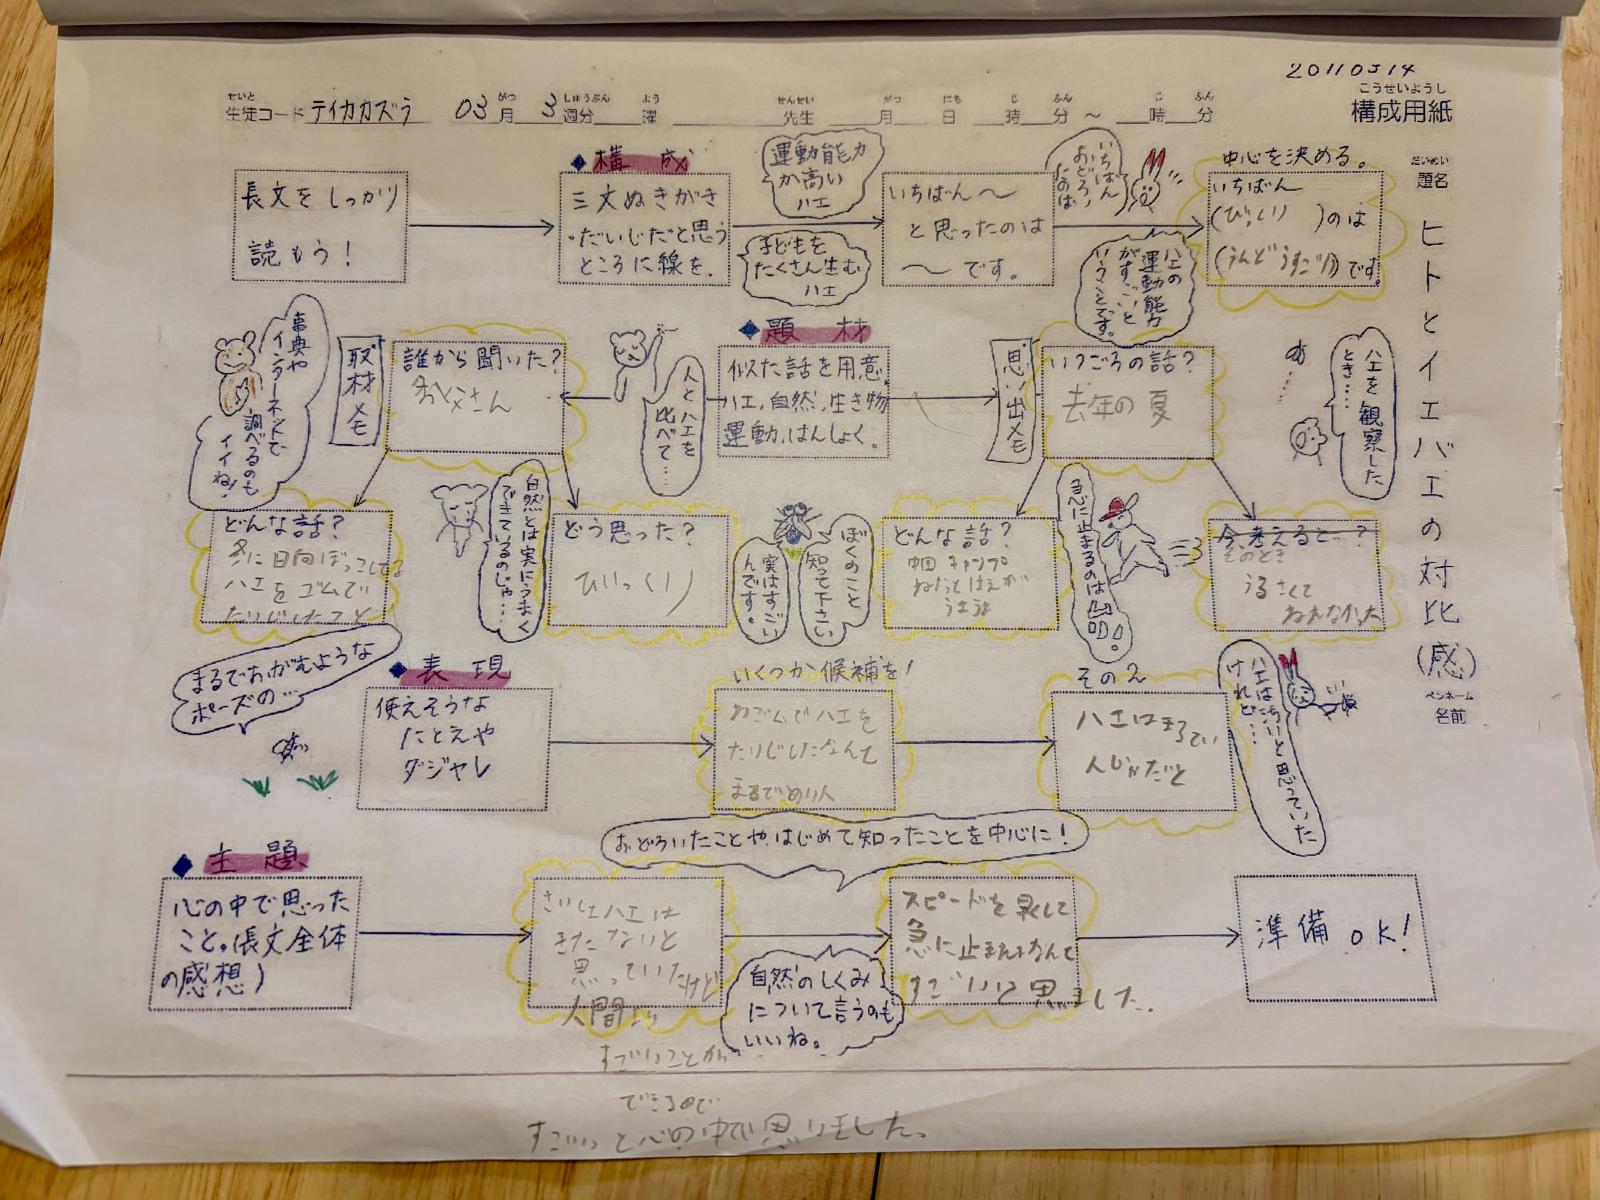 20110314
こうせいようし
構成用紙
せいと
生徒コード テイカカズラ
がつ しゅうぶん よう せんせい がつ にち じ ふん じ ふん
03月 3週分 曜 先生 月 日 時 分 ~ 時 分
だいめい
題名
ヒトとイエバエの対比(感)
ペンネーム
名前
長文をしっかり
読もう!
◆構成
三文ぬきがき
・だいじだと思う
ところに線を。
運動能力
が高い
ハエ
子どもを
たくさん生む
ハエ
いちばん〜
と思ったのは
〜です。
いちばん
おどろい
たのは
ハエの
運動能力
がすごいと
いうことです。
中心を決める。
いちばん
(びっくり)のは
(うんどうすごい)です。
事典や
インターネットで
調べるのも
イイね!
取材メモ
誰から聞いた?
お父さん
人とハエを
比べて…
◆題材
似た話を用意。
ハエ,自然,生き物
運動,はんしょく。
思い出メモ
いつごろの話?
去年の夏
ハエを観察した
とき…
どんな話?
冬に日向ぼっこしてる
ハエをゴムで
たいじしたこと
自然とは実にうまく
できているのじゃ…
どう思った?
びっくり
ぼくのこと
知って下さい
実はすごい
んです。
どんな話?
キャンプ
急に止まるのは
今考えると…?
そのとき
うるさくて
ねれなかった
まるでおがむような
ポーズの…
◆表現
使えそうな
たとえや
ダジャレ
いくつか候補を!
わゴムでハエを
たいじしたなんて
まるでめい人
その2
ハエはまるで
人じゃだと
ハエはきたないと思っていた
けれど…
おどろいたことや、はじめて知ったことを中心に!
◆主題
心の中で思った
こと。(長文全体
の感想)
さいしょハエは
きたないと
思っていたけど
人間より
すごいことが
できるので
すごいと心の中で思いました。
自然のしくみ
について言うのも
いいね。
スピードを早くして
急に止まれるなんて
すごいと思いました。
準備OK!